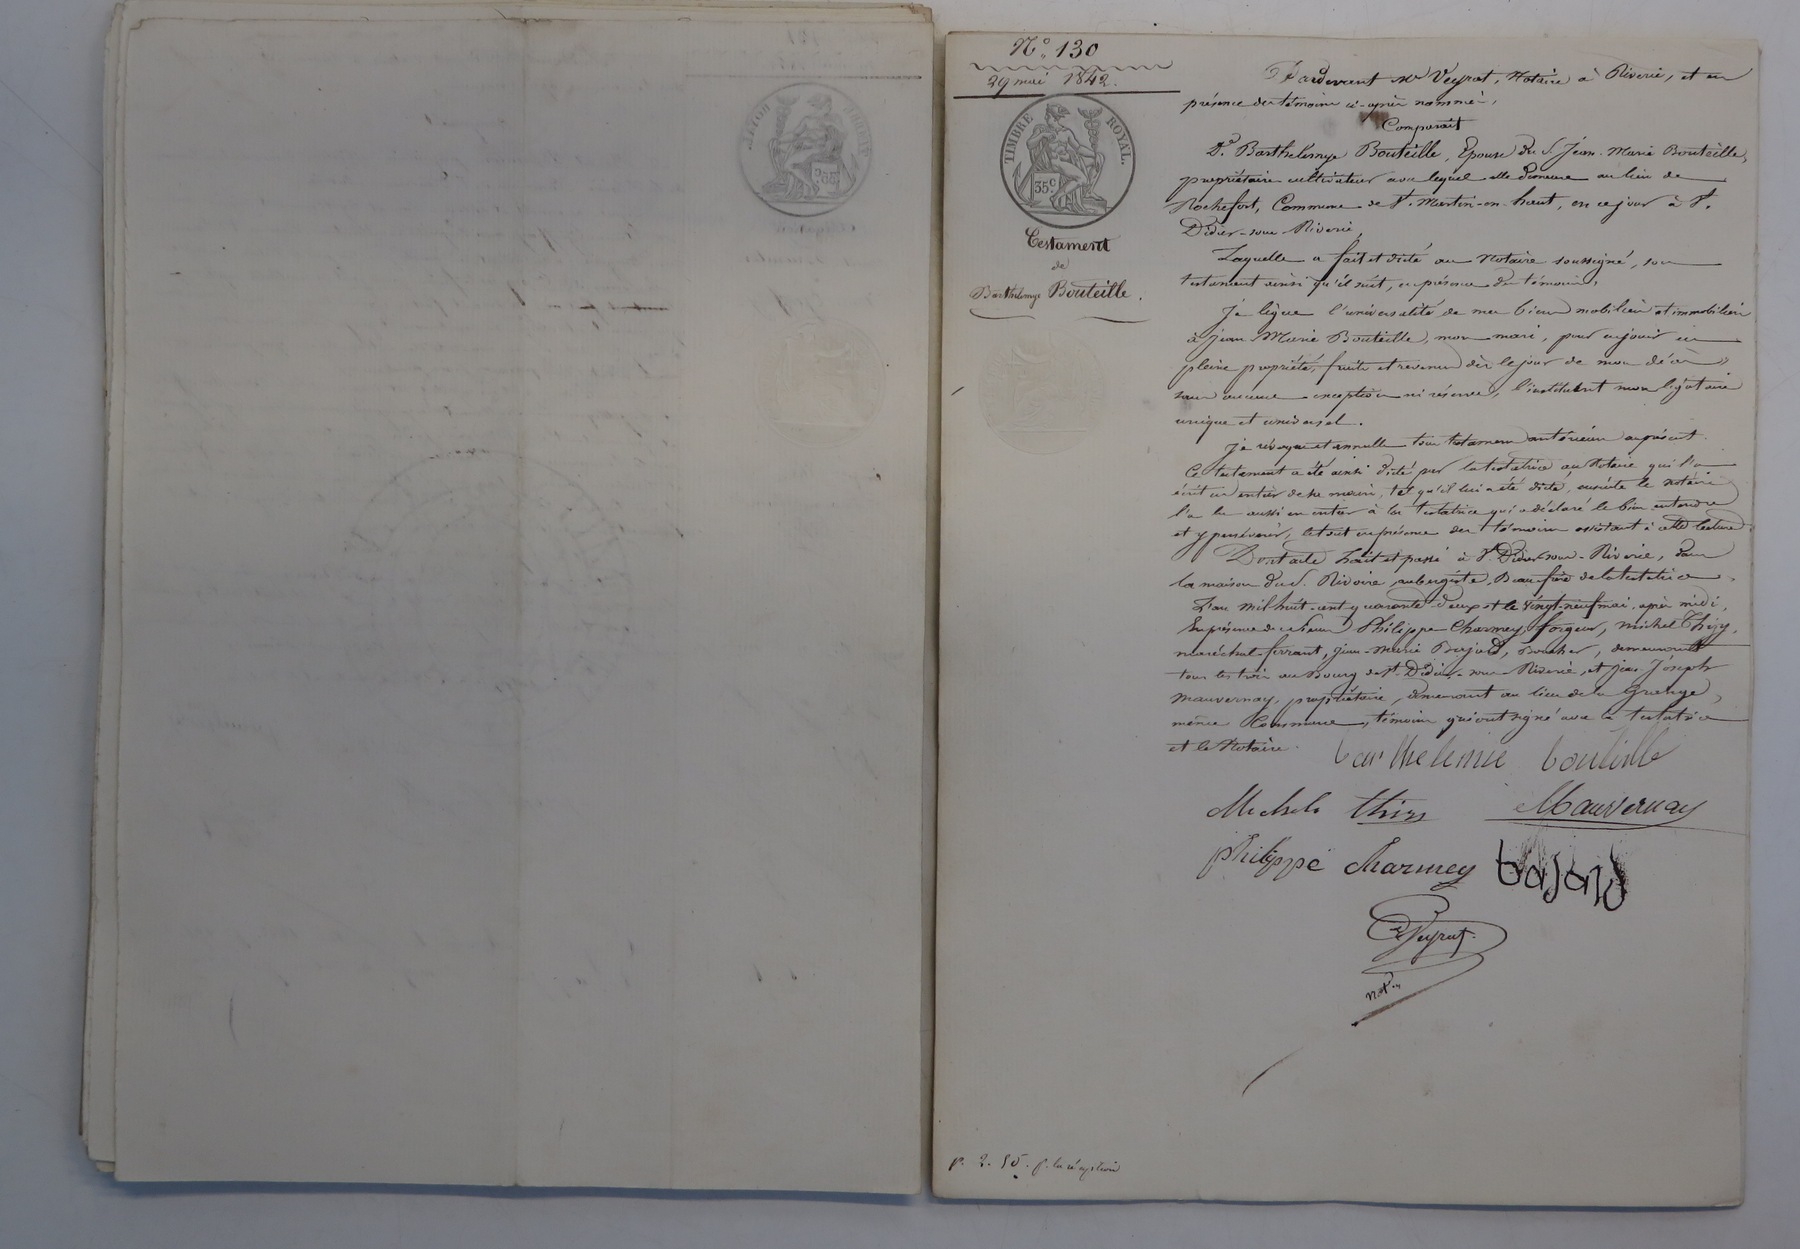 N.° 130
29 mai 1842.
TIMBRE ROYAL.
35c.
Testament
de
Barthelemye Bouteille.
Pardevant Me Veyrat, Notaire à Riverie, et en
présence des témoins ci-après nommés,
Comparait
De. Barthelemye Bouteille, Epouse du S. Jean-Marie Bouteille,
propriétaire cultivateur avec lequel elle demeure au lieu de
Rochefort, Commune de St. Martin-en-haut, en ce jour à St.
Didier-sous-Riverie,
Laquelle a fait et dicté au Notaire soussigné, son
testament ainsi qu'il suit, en présence des témoins,
Je lègue l'universalité de mes biens mobiliers et immobiliers
à Jean-Marie Bouteille, mon mari, pour en jouir en
pleine propriété, fruits et revenus dès le jour de mon décès,
sans aucune exception ni réserve, l'instituant mon légataire
unique et universel.
Je révoque et annulle tous testamens antérieurs au présent.
Ce testament a été ainsi dicté par la testatrice au Notaire qui l'a
écrit en entier de sa main, tel qu'il lui a été dicté, ensuite le notaire
l'a lu aussi en entier à la testatrice qui a déclaré le bien entendre
et y persévérer, le tout en présence des témoins assistant à cette lecture.
Dont acte Fait et passé à St. Didier-sous-Riverie, dans
la maison du S. Rivoire, aubergiste, Beau-frère de la testatrice,
L'an mil huit-cent quarante-deux et le vingt-neuf mai, après midi,
En présence de Philippe Charmey, forgeur, Michel Thizy,
maréchal-ferrant, Jean-Marie Bajard, Boucher, demeurants
tous les trois au Bourg de St. Didier-sous-Riverie, et Jean-Joseph
Mauvernay, propriétaire, demeurant au lieu de la Grange,
même Commune, témoins qui ont signé avec la testatrice
et le Notaire.
barthelemie bouteille
Michel thizy Mauvernay
philippe charmey bajard
Veyrat
not.re
p. 2. 50. p. la réception